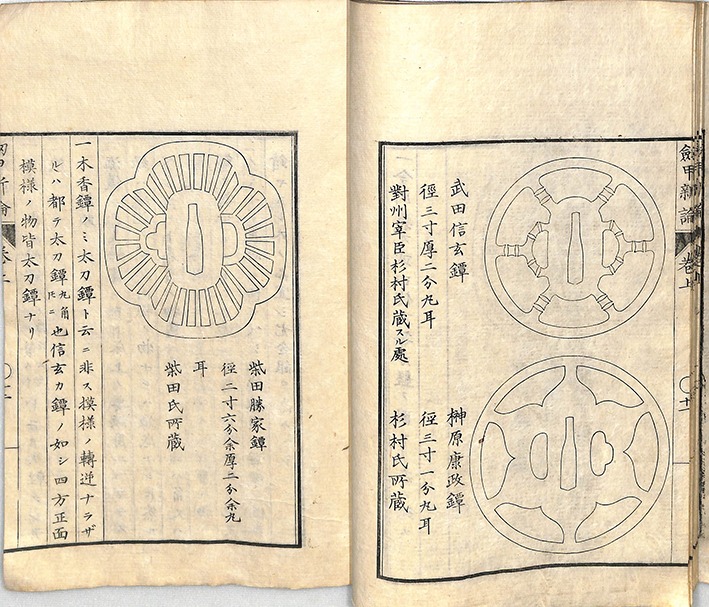 劔甲新論
卷上
武田信玄鐔
徑三寸厚二分丸耳
對州宰臣杉村氏蔵スル處
榊原康政鐔
徑三寸一分丸耳
杉村氏所蔵
柴田勝家鐔
徑二寸六分余厚二分余丸
耳
柴田氏所蔵
一木香鐔ノミ太刀鐔ト云ニ非ス模様ノ轉逆ナラザ
ルハ都テ太刀鐔丸角圧ニ也信玄カ鐔ノ如シ四方正面
模様ノ物皆太刀鐔ナリ